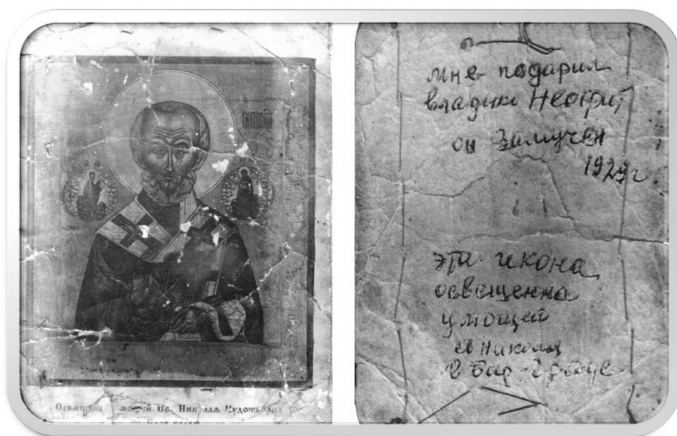 Св. Николая Чудотворца
мне подарил
владыка Неофит
он Замучен
1929 г
эта икона
освещенна
у мощей
св Николы
в Бар-граде